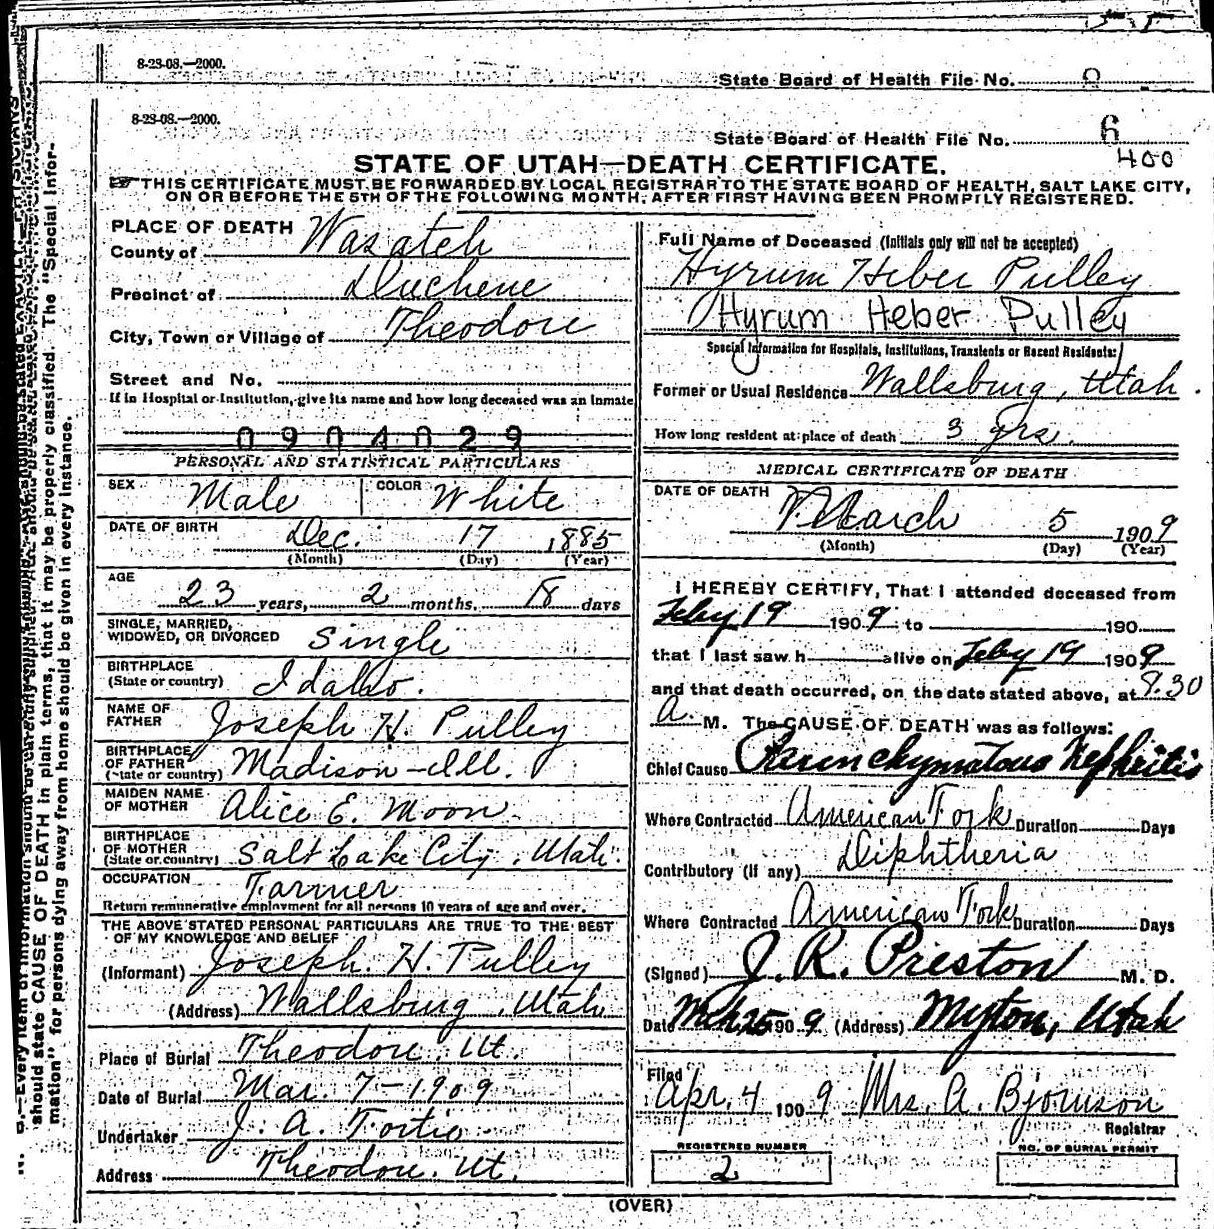 8-23-08.—2000.
State Board of Health File No.
8-23-08.—2000.
State Board of Health File No. 6
400
STATE OF UTAH—DEATH CERTIFICATE.
THIS CERTIFICATE MUST BE FORWARDED BY LOCAL REGISTRAR TO THE STATE BOARD OF HEALTH, SALT LAKE CITY,
ON OR BEFORE THE 5TH OF THE FOLLOWING MONTH, AFTER FIRST HAVING BEEN PROMPTLY REGISTERED.
PLACE OF DEATH
County of Wasatch
Precinct of Duchene
City, Town or Village of Theodore
Street and No.
If in Hospital or Institution, give its name and how long deceased was an inmate
0904029
PERSONAL AND STATISTICAL PARTICULARS
SEX Male COLOR White
DATE OF BIRTH Dec. 17 1885
(Month) (Day) (Year)
AGE
23 years, 2 months, 18 days
SINGLE, MARRIED,
WIDOWED, OR DIVORCED Single
BIRTHPLACE
(State or country) Idaho.
NAME OF
FATHER Joseph H. Pulley
BIRTHPLACE
OF FATHER
(State or country) Madison-Ill.
MAIDEN NAME
OF MOTHER Alice E. Moon
BIRTHPLACE
OF MOTHER
(State or country) Salt Lake City, Utah.
OCCUPATION Farmer
Return remunerative employment for all persons 10 years of age and over.
THE ABOVE STATED PERSONAL PARTICULARS ARE TRUE TO THE BEST
OF MY KNOWLEDGE AND BELIEF
(Informant) Joseph. H. Pulley
(Address) Wallsburg, Utah
Place of Burial Theodore. Ut.
Date of Burial Mar. 7-1909
Undertaker J. A. Fortie
Address Theodore. Ut.
Full Name of Deceased (Initials only will not be accepted)
Hyrum Heber Pulley
Hyrum Heber Pulley
Special Information for Hospitals, Institutions, Transients or Recent Residents:
Former or Usual Residence Wallsburg, Utah.
How long resident at place of death 3 yrs.
MEDICAL CERTIFICATE OF DEATH
DATE OF DEATH March 5 1909
(Month) (Day) (Year)
I HEREBY CERTIFY, That I attended deceased from
Feby 19 1909, to 190
that I last saw h alive on Feby 19 1909
and that death occurred, on the date stated above, at 9.30
A. M. The CAUSE OF DEATH was as follows:
Chief Cause Parenchymatous Nephritis
Where Contracted American Fork Duration Days
Contributory (if any) Diphtheria
Where Contracted American Fork Duration Days
(Signed) J. R. Preston M. D.
Date Mch 25 1909 (Address) Myton, Utah
Filed
Apr. 4 1909 Mrs. A. Bjornson
Registrar
REGISTERED NUMBER
2
NO. OF BURIAL PERMIT
(OVER)
should state CAUSE OF DEATH in plain terms, that it may be properly classified. The "Special Infor-
mation" for persons dying away from home should be given in every instance.